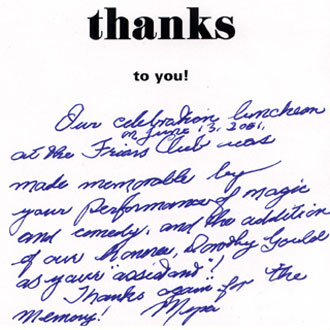 thanks
to you!
Our celebration luncheon
on June 13, 2001,
at the Friars Club was
made memorable by
your performance of magic
and comedy, and the addition
of our honoree, Dorothy Gould
as your "assistant"!
Thanks again for the
memory!